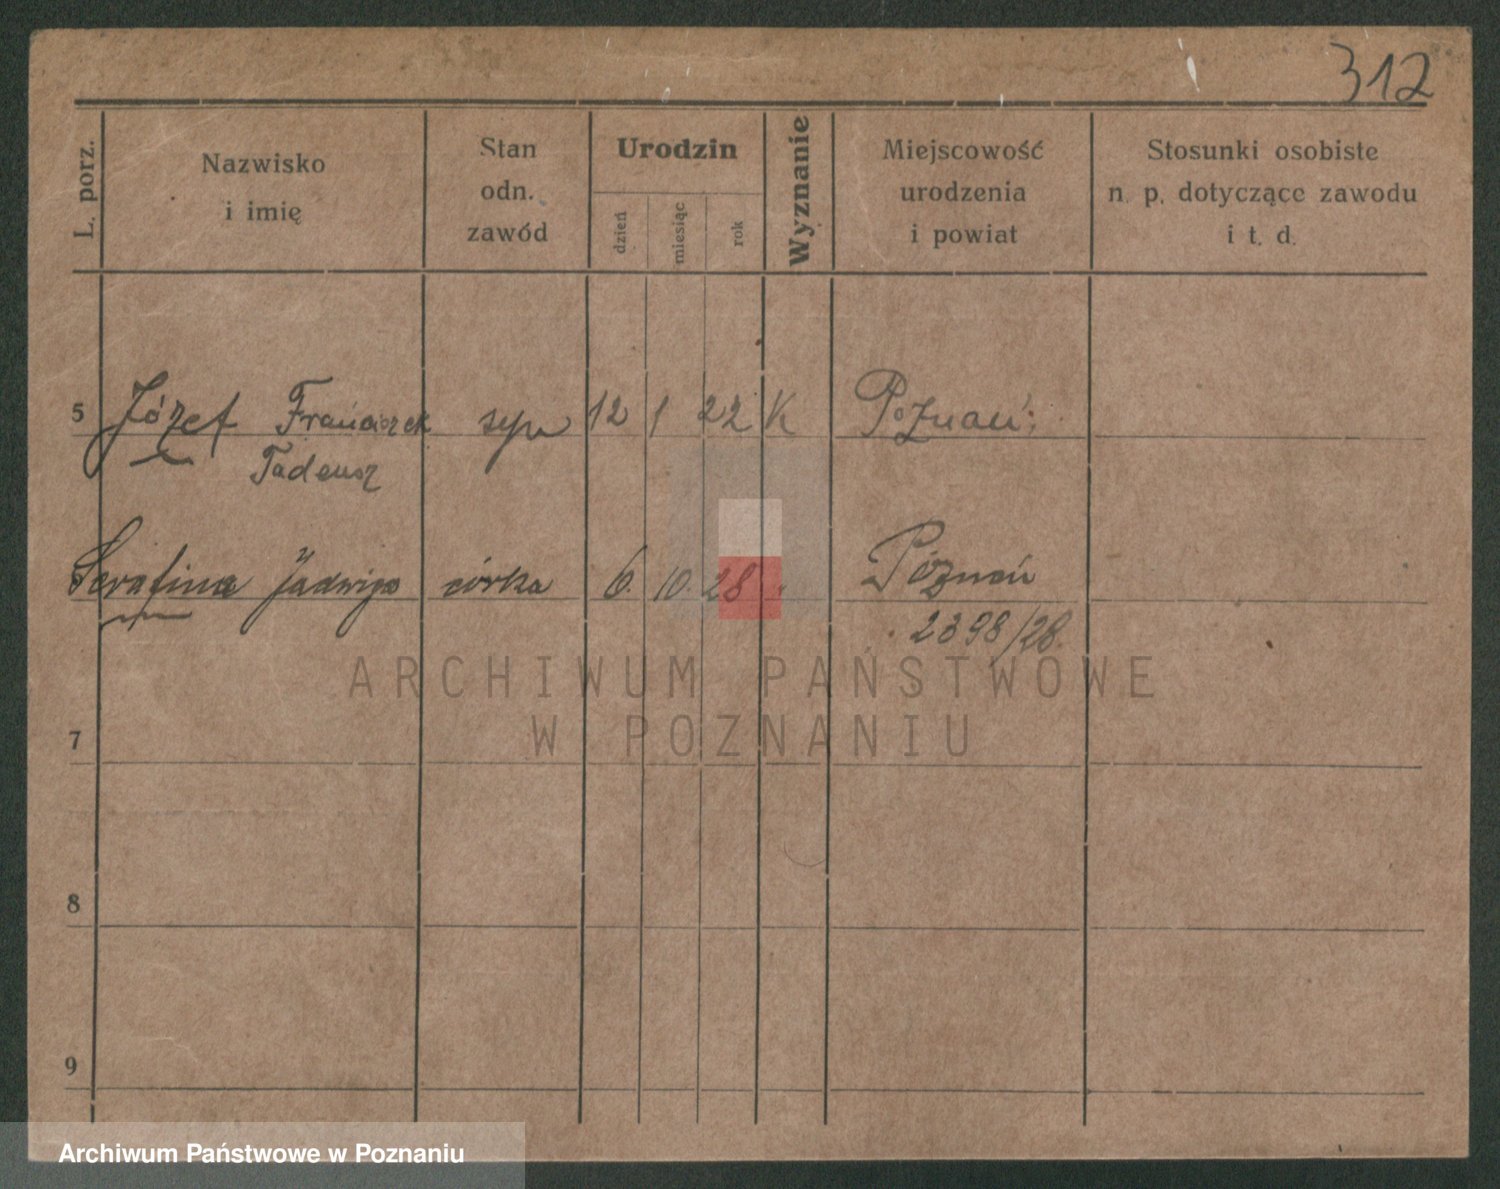 312
L. porz.
Nazwisko
i imię
Stan
odn.
zawód
Urodzin
dzień
miesiąc
rok
Wyznanie
Miejscowość
urodzenia
i powiat
Stosunki osobiste
n. p. dotyczące zawodu
i t. d.
5 Józef Franciszek syn 12 1 22 K Poznań
Tadeusz
Serafina Jadwiga córka 6. 10. 28 " Poznań
2398/28.
ARCHIWUM PAŃSTWOWE
W POZNANIU
7
8
9
Archiwum Państwowe w Poznaniu